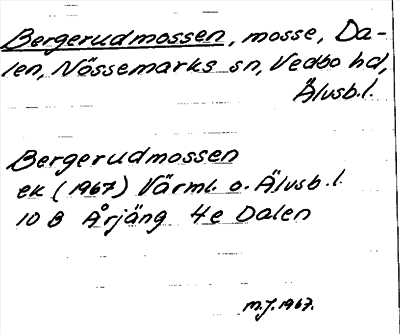 Bergerudmossen, mosse, Da-
len, Nössemarks sn, Vedbo hd,
Älvsb.l.
Bergerudmossen
ek (1967) Värml. o. Älvsb.l.
10 B Årjäng 4e Dalen
M.J. 1967.